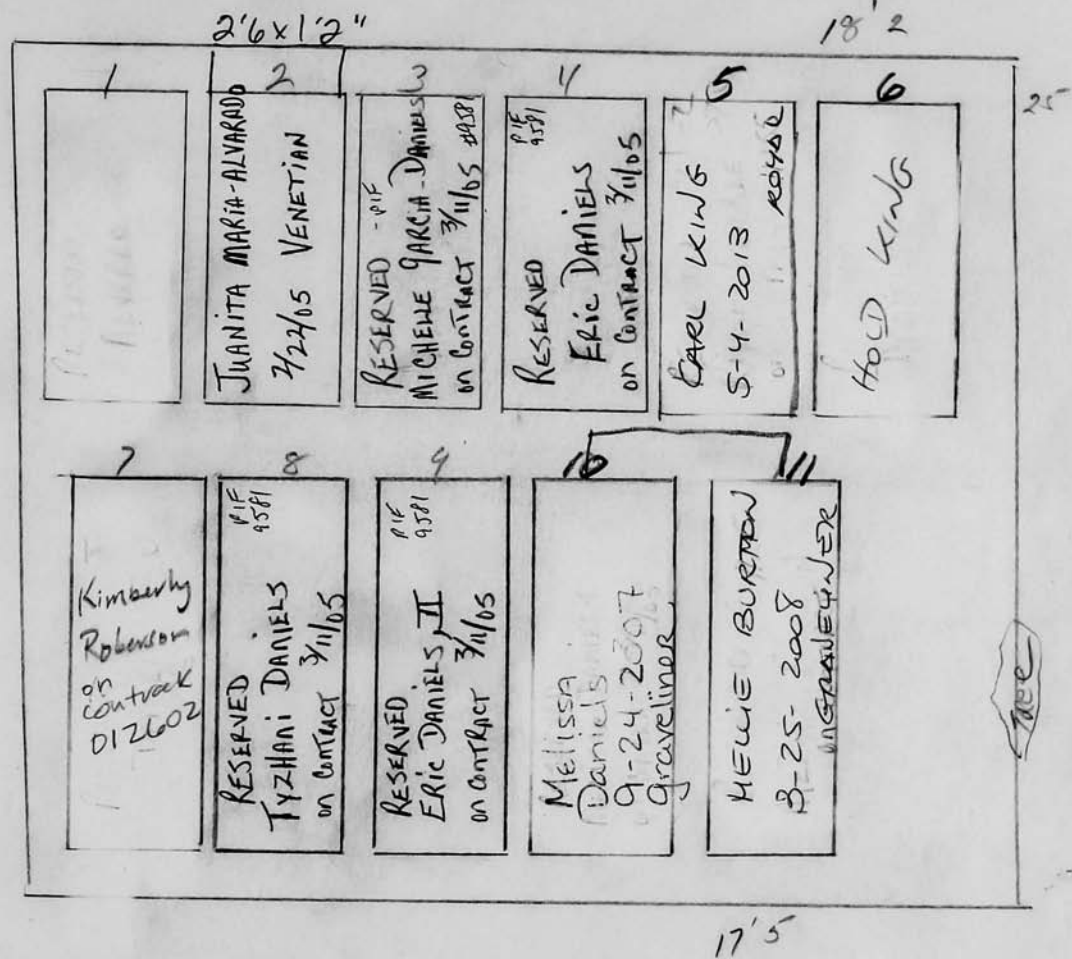 2'6 x 1'2"
18'2
25
1
2
JUANITA MARIA-ALVARADO
2/22/05 VENETIAN
3
RESERVED - PIF
MICHELLE GARCIA-DANIELS
on CONTRACT 3/11/05 #9581
4
PIF
9581
RESERVED
ERIC DANIELS
on CONTRACT 3/11/05
5
EARL KING
5-4-2013
6
HOLD KING
7
Kimberly
Roberson
on
contrack
012602
8
PIF
9581
RESERVED
TYZHANI DANIELS
on CONTRACT 3/11/05
9
PIF
9581
RESERVED
ERIC DANIELS, II
on CONTRACT 3/11/05
10
Melissa
Daniels
9-24-2007
graveliner
11
NELLIE BURTON
8-25-2008
Tree
17'5